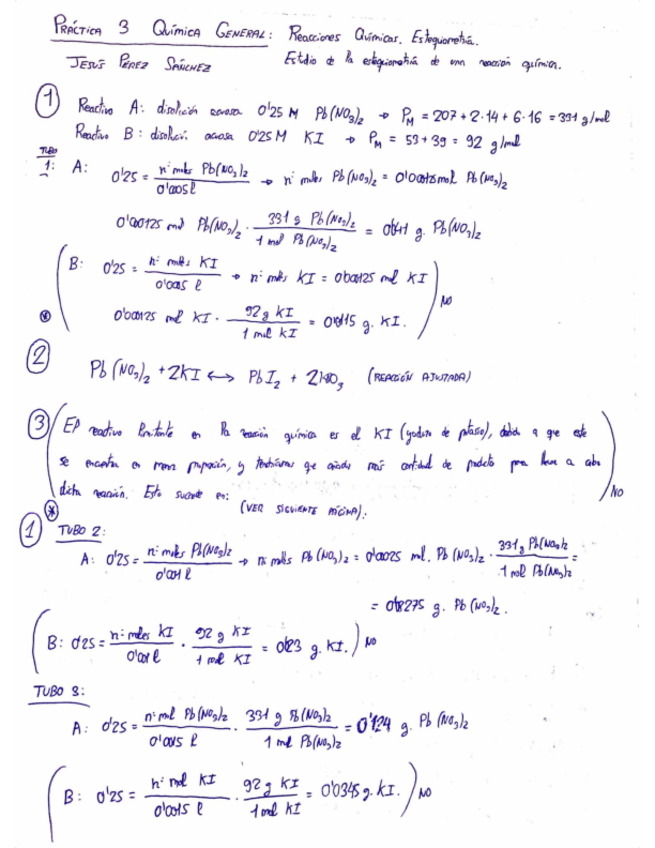 PRÁCTICA 3 QUÍMICA GENERAL: Reacciones Químicas. Estequiometría.
JESÚS PÉREZ SÁNCHEZ Estudio de la estequiometría de una reacción química.
① Reactivo A: disolución acuosa 0'25 M Pb(NO₃)₂ → P_M = 207 + 2·14 + 6·16 = 331 g/mol
Reactivo B: disolución acuosa 0'25 M KI → P_M = 53 + 39 = 92 g/mol
TUBO 1: A: 0'25 = nº moles Pb(NO₃)₂ / 0'0005 l → nº moles Pb(NO₃)₂ = 0'000125 mol Pb(NO₃)₂
0'000125 mol Pb(NO₃)₂ · 331 g Pb(NO₃)₂ / 1 mol Pb(NO₃)₂ = 0'041 g. Pb(NO₃)₂
B: 0'25 = nº moles KI / 0'0005 l → nº moles KI = 0'000125 mol KI
0'000125 mol KI · 92 g KI / 1 mol KI = 0'0115 g. KI. NO
② Pb(NO₃)₂ + 2KI ⟷ PbI₂ + 2KNO₃ (REACCIÓN AJUSTADA)
③ El reactivo limitante en la reacción química es el KI (yoduro de potasio), debido a que este
se encuentra en menor proporción, y tendríamos que añadir más cantidad de producto para llevar a cabo
dicha reacción. Esto sucede en: (VER SIGUIENTE PÁGINA). NO
① TUBO 2:
A: 0'25 = nº moles Pb(NO₃)₂ / 0'001 l → nº moles Pb(NO₃)₂ = 0'00025 mol. Pb(NO₃)₂ · 331 g Pb(NO₃)₂ / 1 mol Pb(NO₃)₂ =
= 0'08275 g. Pb(NO₃)₂.
B: 0'25 = nº moles KI / 0'001 l · 92 g KI / 1 mol KI = 0'023 g. KI. NO
TUBO 3:
A: 0'25 = nº mol Pb(NO₃)₂ / 0'0015 l · 331 g Pb(NO₃)₂ / 1 mol Pb(NO₃)₂ = 0'124 g. Pb(NO₃)₂
B: 0'25 = nº mol KI / 0'0015 l · 92 g KI / 1 mol KI = 0'0345 g. KI. NO